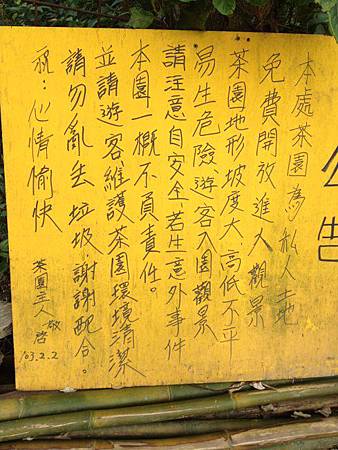 公告
本處茶園為私人土地
免費開放進入觀景
茶園地形坡度大高低不平
易生危險遊客入園觀景
請注意自安全若生意外事件
本園一概不負責任。
並請遊客維護茶園環境清潔
請勿亂丟垃圾謝謝配合。
祝:心情愉快
茶園主人 敬啓
103.2.2